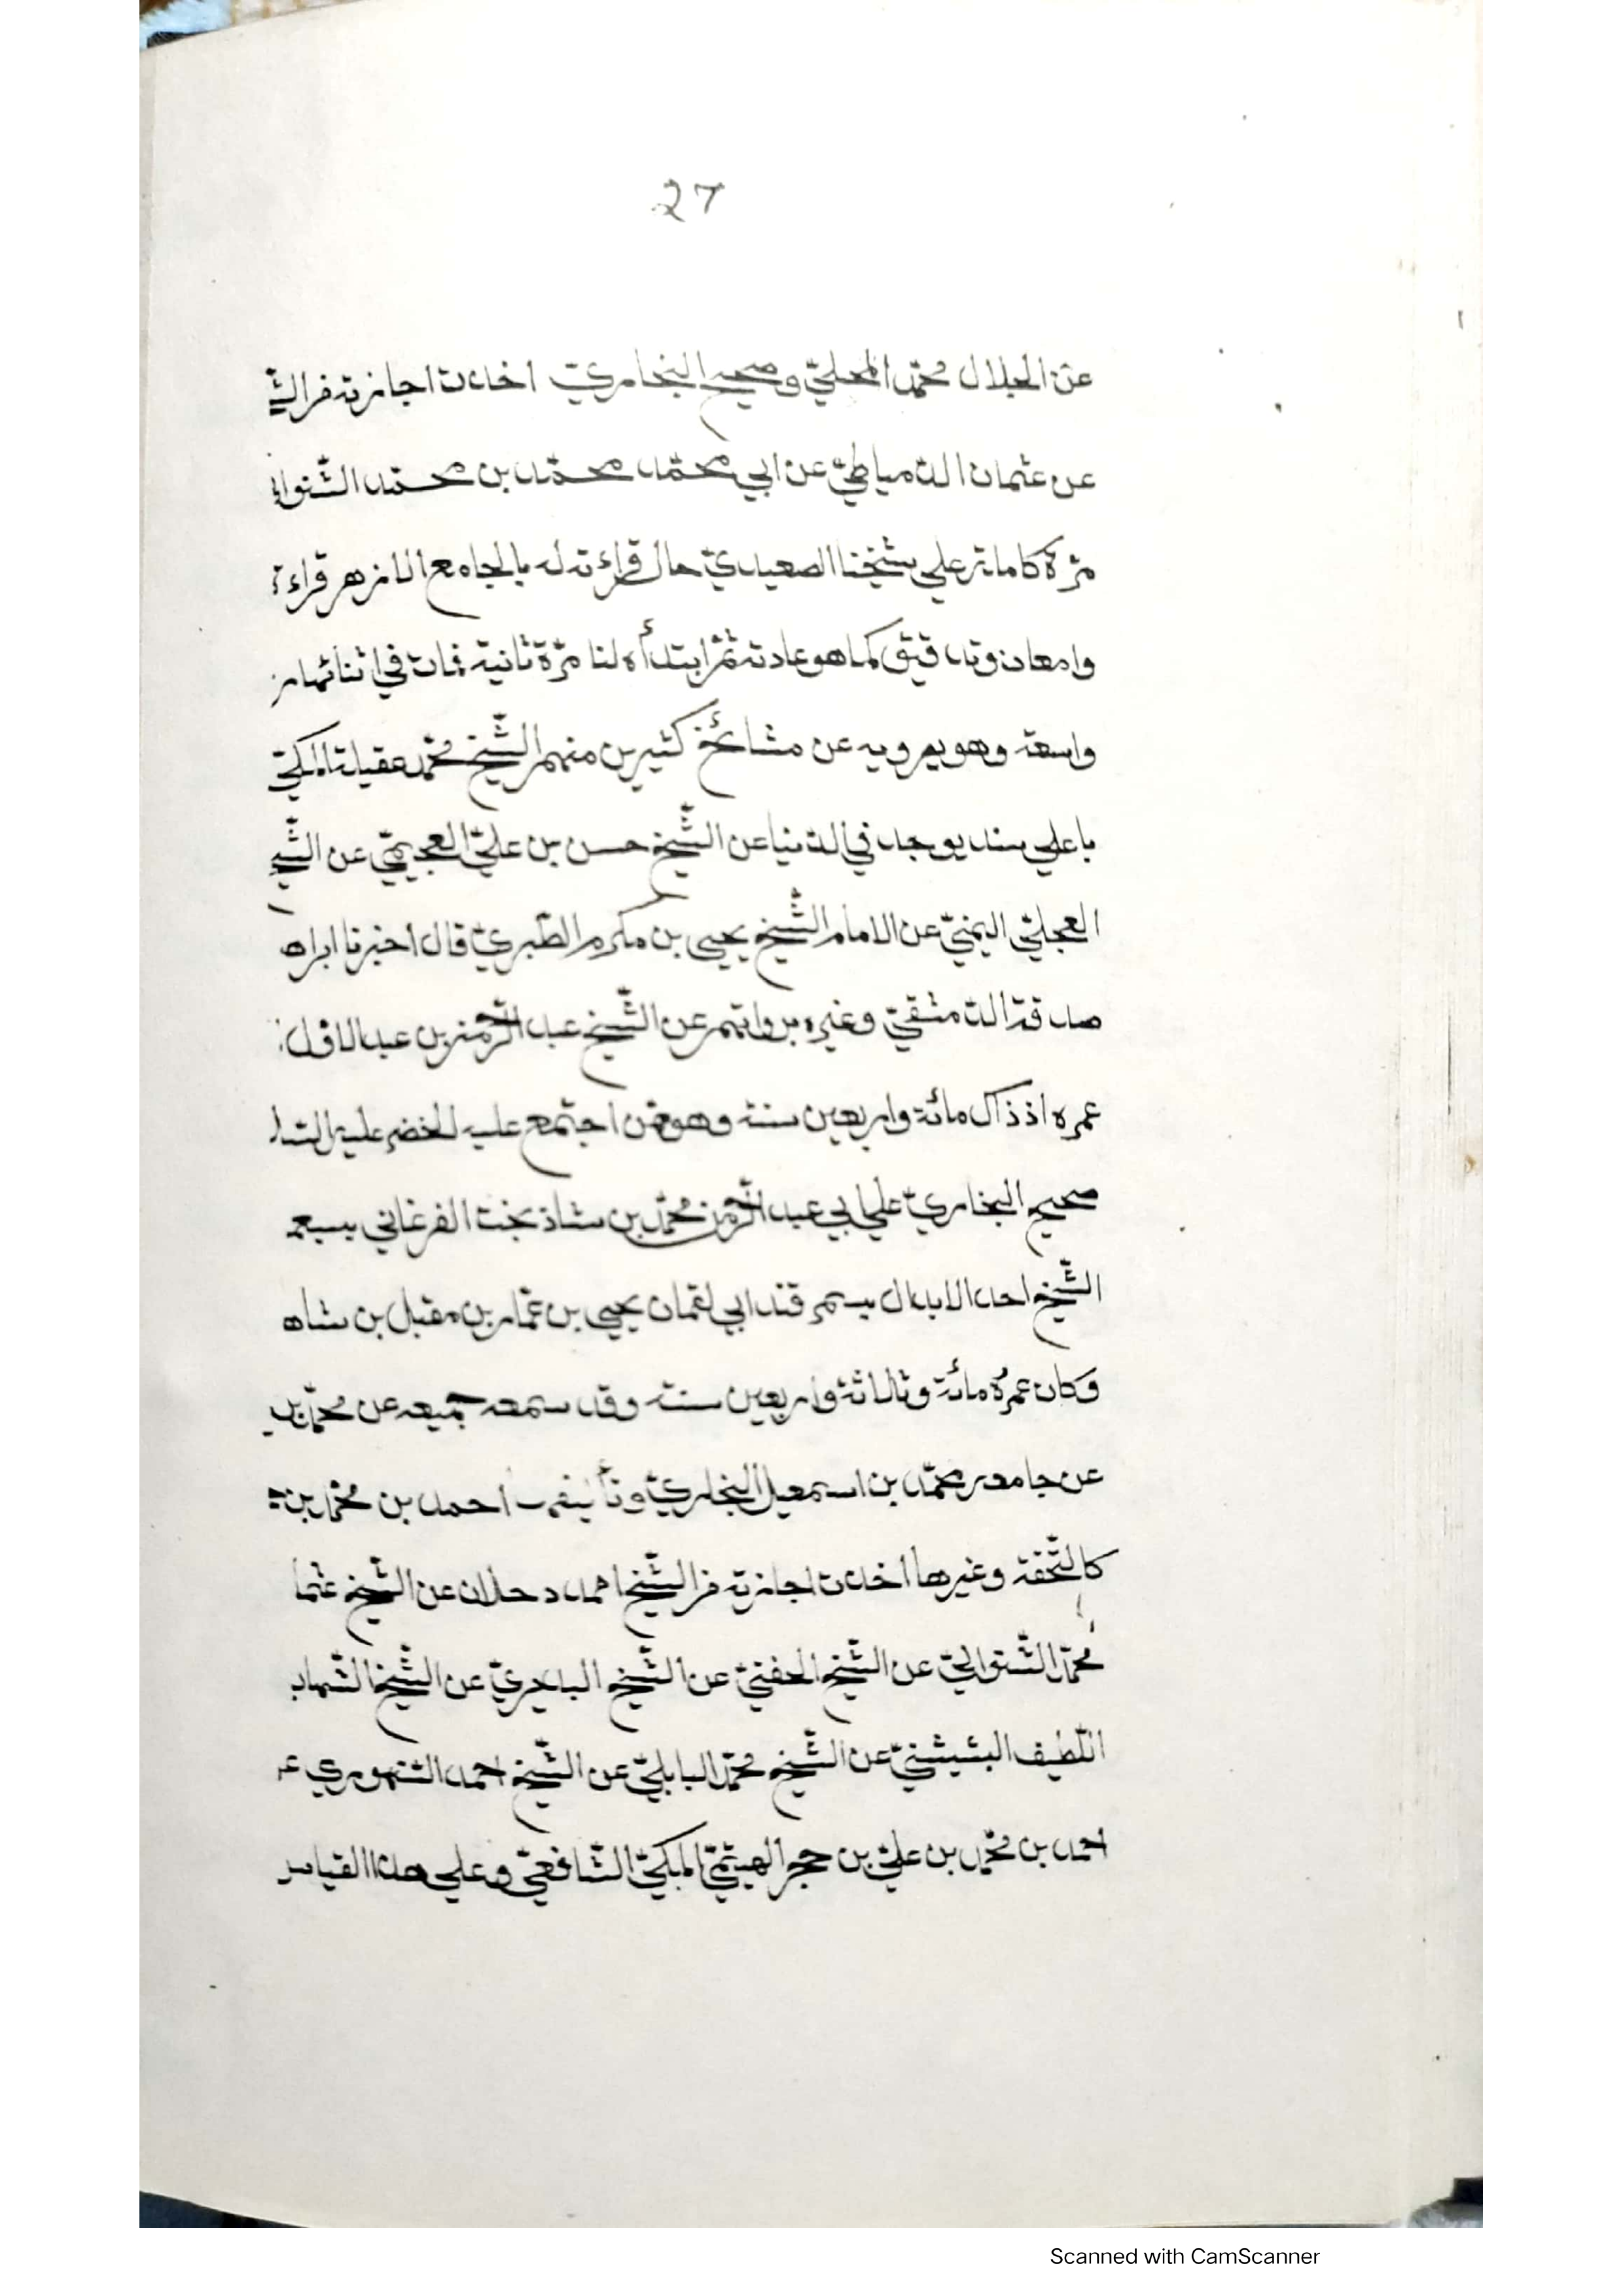 27
عن الجلال محمّد المحليّ وصحيح البخاريّ اخذت اجازته من الشّ
عن عثمان الدّمياطيّ عن ابي محمّد محمّد بن محمّد الشّنوا
مرّة كاملة على شيخنا الصعيديّ حال قراءته له بالجامع الازهر قراءة
وامعان وتدقيق كما هو عادته ثمّ ابتدأه لنا مرّة ثانية فمات في اثنائها
واسعة وهو يرويه عن مشائخ كثيرين منهم الشّيخ محمّد عقيلة المكيّ
باعلى سند يوجد في الدّنيا عن الشّيخ حسن بن عليّ العجيميّ عن الشّيخ
العجليّ اليمنيّ عن الامام الشّيخ يحيى بن مكرم الطّبريّ قال اخبرنا ابراه
صدقة الدّمشقيّ وغيره بروايتهم عن الشّيخ عبد الرّحمن بن عبد الاوّل
عمره اذ ذاك مائة واربعين سنة وهو ممّن اجتمع عليه الخضر عليه السّلا
صحيح البخاريّ على ابي عبد الرّحمن محمّد بن شاذ بخت الفرغاني بسمعه
الشّيخ احد الابدال بسمرقند ابي لقمان يحيى بن عمّار بن مقبل بن شاه
وكان عمرُه مائة وثلاثة واربعين سنة وقد سمعه جميعه عن محمّد بن
عن جامعه محمّد بن اسمعيل البخاريّ وتأليف احمد بن محمّد بن
كالتّحفة وغيرها اخذت اجازته من الشّيخ احمد دحلان عن الشّيخ عثما
محمّد الشّنوانيّ عن الشّيخ الحفنيّ عن الشّيخ البديريّ عن الشّيخ الشّهاب
اللّطيف البشيشيّ عن الشّيخ محمّد البابليّ عن الشّيخ احمد السّنهوري ع
احمد بن محمّد بن عليّ بن حجر الهيتميّ المكيّ الشّافعيّ وعلى هذا القياس
Scanned with CamScanner